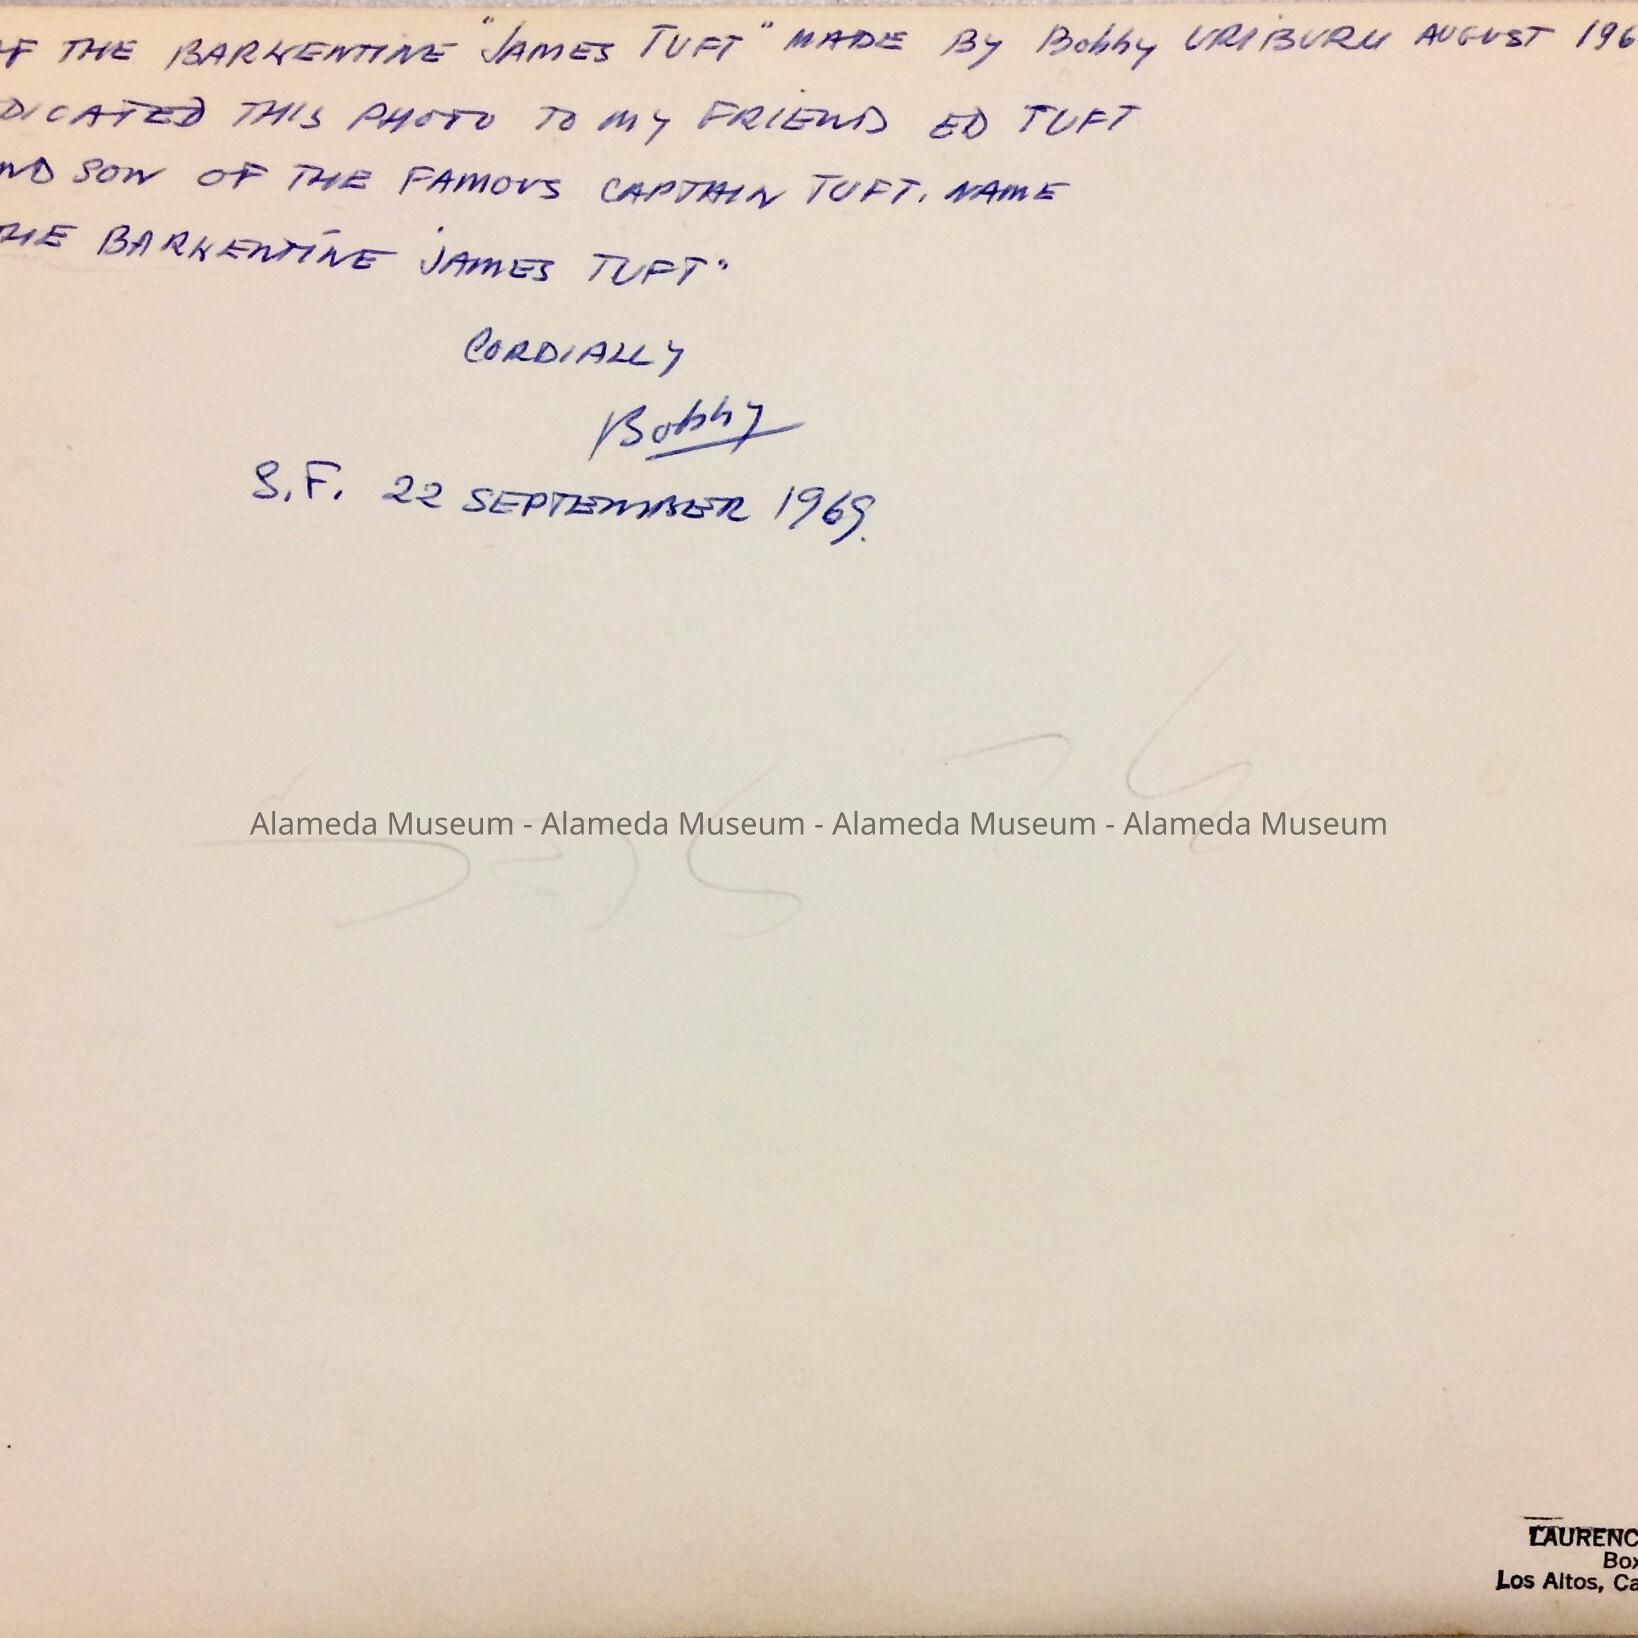 OF THE BARKENTINE "JAMES TUFT" MADE BY Bobby URIBURU AUGUST 196
DICATED THIS PHOTO TO MY FRIEND ED TUFT
ND SON OF THE FAMOUS CAPTAIN TUFT. NAME
THE BARKENTINE "JAMES TUFT"
CORDIALLY
Bobby
S.F. 22 SEPTEMBER 1969.
Alameda Museum - Alameda Museum - Alameda Museum - Alameda Museum
LAURENC
Box
Los Altos, Ca